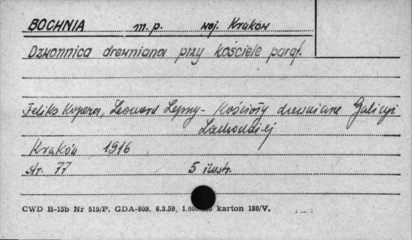 BOCHNIA m.p. woj. Kraków
Dzwonnica drewniana przy kościele paraf.
Feliks Kopera, Leonard Lepszy - Kościoły drewniane Galicyi
Zachodniej
Kraków 1916
str. 77 5 ilustr.
CWD B-15b Nr 515/P. GDA-809. 6.3.59. 1.000.000 karton 180/V.